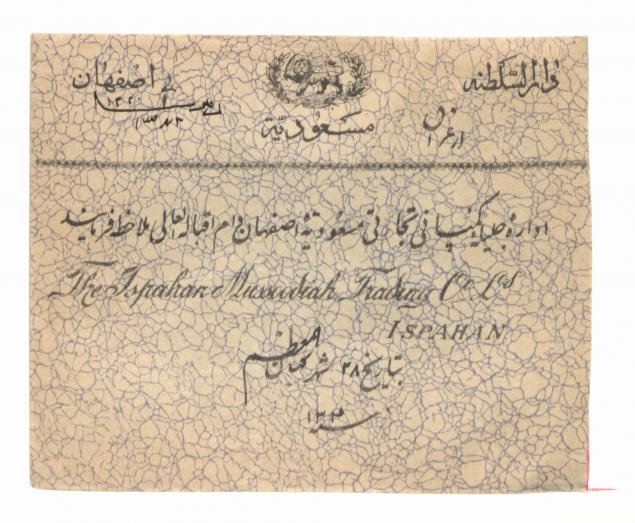 دارالسلطنه
اصفهان
مسعودیّة
۱۳۲۰
اداره جلیله کمپانی تجارتی مسعودیّهٔ اصفهان دام اقباله العالی ملاحظه فرمایند
The Ispahan Mussoudiah Trading Co Ltd
ISPAHAN
بتاریخ ۲۸ شهر شعبان المعظم
سنه ۱۳۲۰